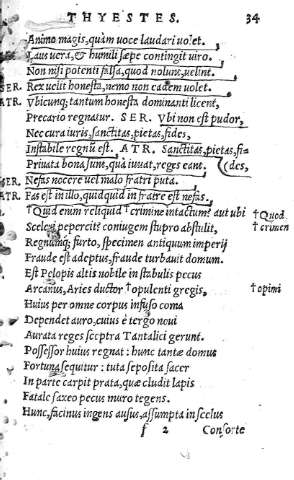 THYESTES. 34
Animo magis, quàm voce laudari uolet.
Laus uera, & humili sæpe contingit uiro.
Non nisi potenti falsa, quod nolunt, uelint.
SER. Rex uelit honesta, nemo non eadem uolet.
ATR. Vbicunq; tantum honesta dominanti licent,
Precario regnatur. SER. Vbi non est pudor,
Nec cura iuris, sanctitas, pietas, fides,
Instabile regnũ est. ATR. Sanctitas, pietas, fi=
Priuata bona sunt, quà iuuat, reges eant. (des,
SER. Nefas nocere uel malo fratri puta.
ATR. Fas est in illo, quidquid in fratre est nefas.
†Quid enim reliquid crimine intactum? aut ubi †Quod
Sceleri pepercit? coniugem stupro abstulit, crimen
Regnumq; furto, specimen antiquum imperij
Fraude est adeptus, fraude turbauit domum.
Est Pelopis altis nobile in stabulis pecus
Arcanus, Aries ductor †opulenti gregis, †opimi
Huius per omne corpus infuso coma
Dependet auro, cuius è tergo noui
Aurata reges sceptra Tantalici gerunt.
Possessor huius regnat: hunc tantæ domus
Fortuna sequitur: tuta seposita sacer
In parte carpit prata, quæ cludit lapis
Fatale saxeo pecus muro tegens.
Hunc, facinus ingens ausus, assumpta in scelus
f 2 Consorte